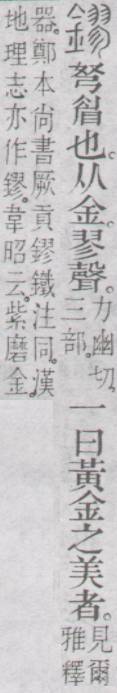 鏐弩睂也。从金。翏聲。力幽切。三部。一曰黃金之美者。見爾雅釋
器。鄭本尚書厥貢鏐鐵注同。漢
地理志亦作鏐。韋昭云。紫磨金。